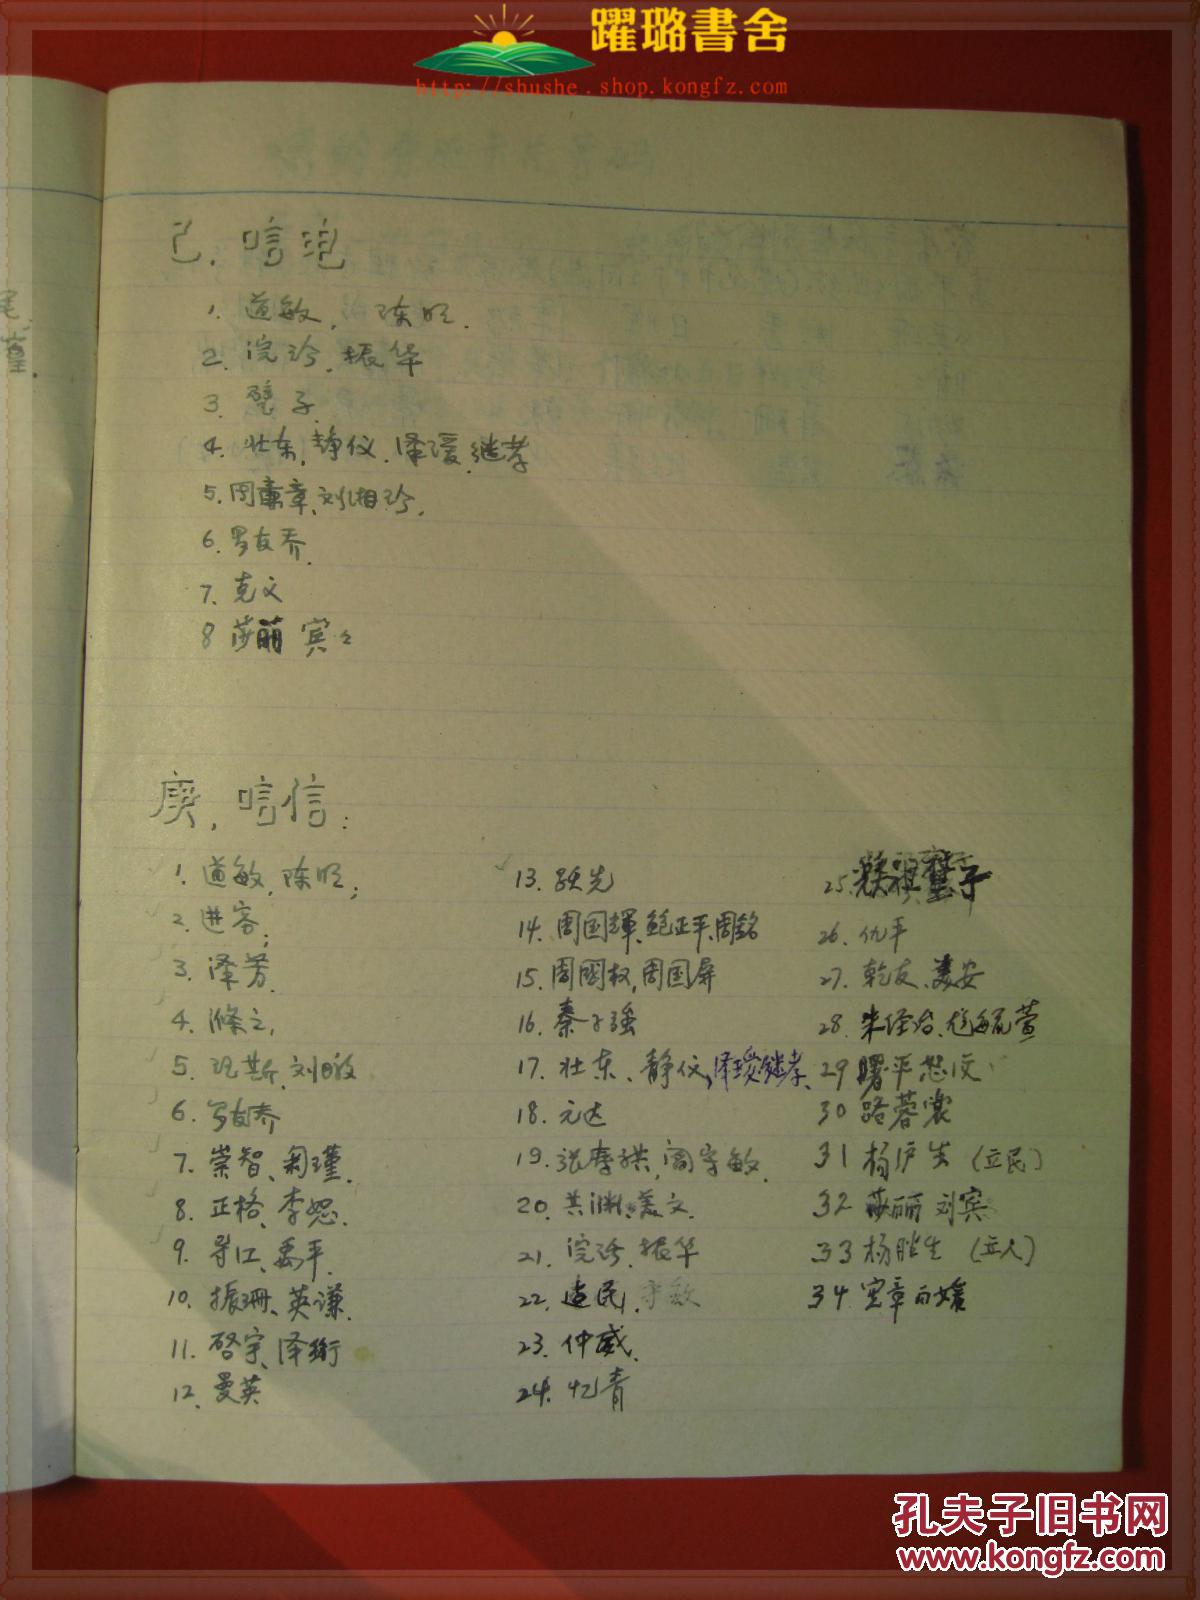 躍璐書舍
http://shushe.shop.kongfz.com
己. 唁电
1. 道敏, 陈旺.
2. 浣玲, 振华
3. 子
4. 壮东, 静仪, 泽瑗, 继孝
5. 周肃章、刘湘玲,
6. 罗友乔.
7. 克文
8 莎丽 宾々
庚, 唁信:
1. 道敏, 陈旺;
2. 进客;
3. 泽芳.
4. 滌之,
5. 刘
6. 罗友乔
7. 崇智、
8. 正格、李恕.
9. 导江、禹平.
10. 振珊、英谦.
11. 啓宇、泽珩
12. 曼英
13. 跃先
14. 周国輝、鲍正平、周銘
15. 周國权, 周国屏
16. 秦子强
17. 壮东、静仪, 泽瑗、继孝、
18. 元达
19. 张摩 守敏.
20. 共渊、美文.
21. 浣玲、振华
22. 造民、守敏
23. 仲威.
24. 忆青
25. 子
26. 仇平
27. 乾友、美安
28. 朱经冶、毓萱
29 曙平
30 路蓉裳
31 杨沪生 (立民)
32 莎丽 刘宾
33 杨胜生 (立人)
34. 宪章 白媛
孔夫子旧书网
www.kongfz.com